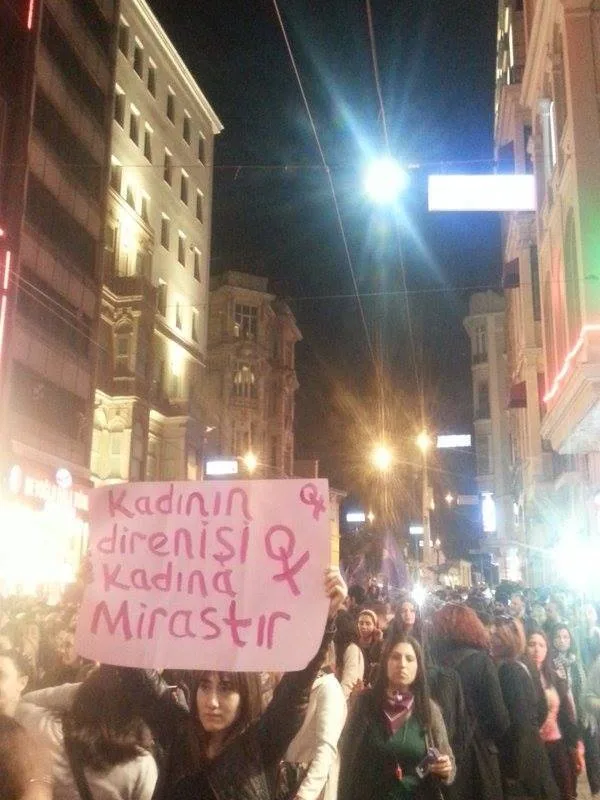 Kadının
direnişi
Kadına
Mirastır